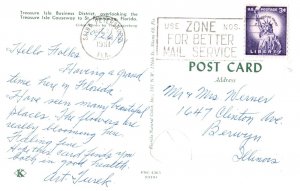 Treasure Isle Business District, overlooking the
Treasure Isle Causeway to St. Petersburg, Florida.
Hello Folks
Having a grand
time here in Florida.
Have seen many beautiful
places. The flowers are
really blooming here
Feeling fine
Hope this card finds you
back in good health.
Art Turek
K
FLA.
USE ZONE NOS.
FOR BETTER
MAIL SERVICE
3¢
LIBERTY
POST CARD
Address
Mr & Mrs Werner
1647 Clinton Ave
Berwyn
Illinois